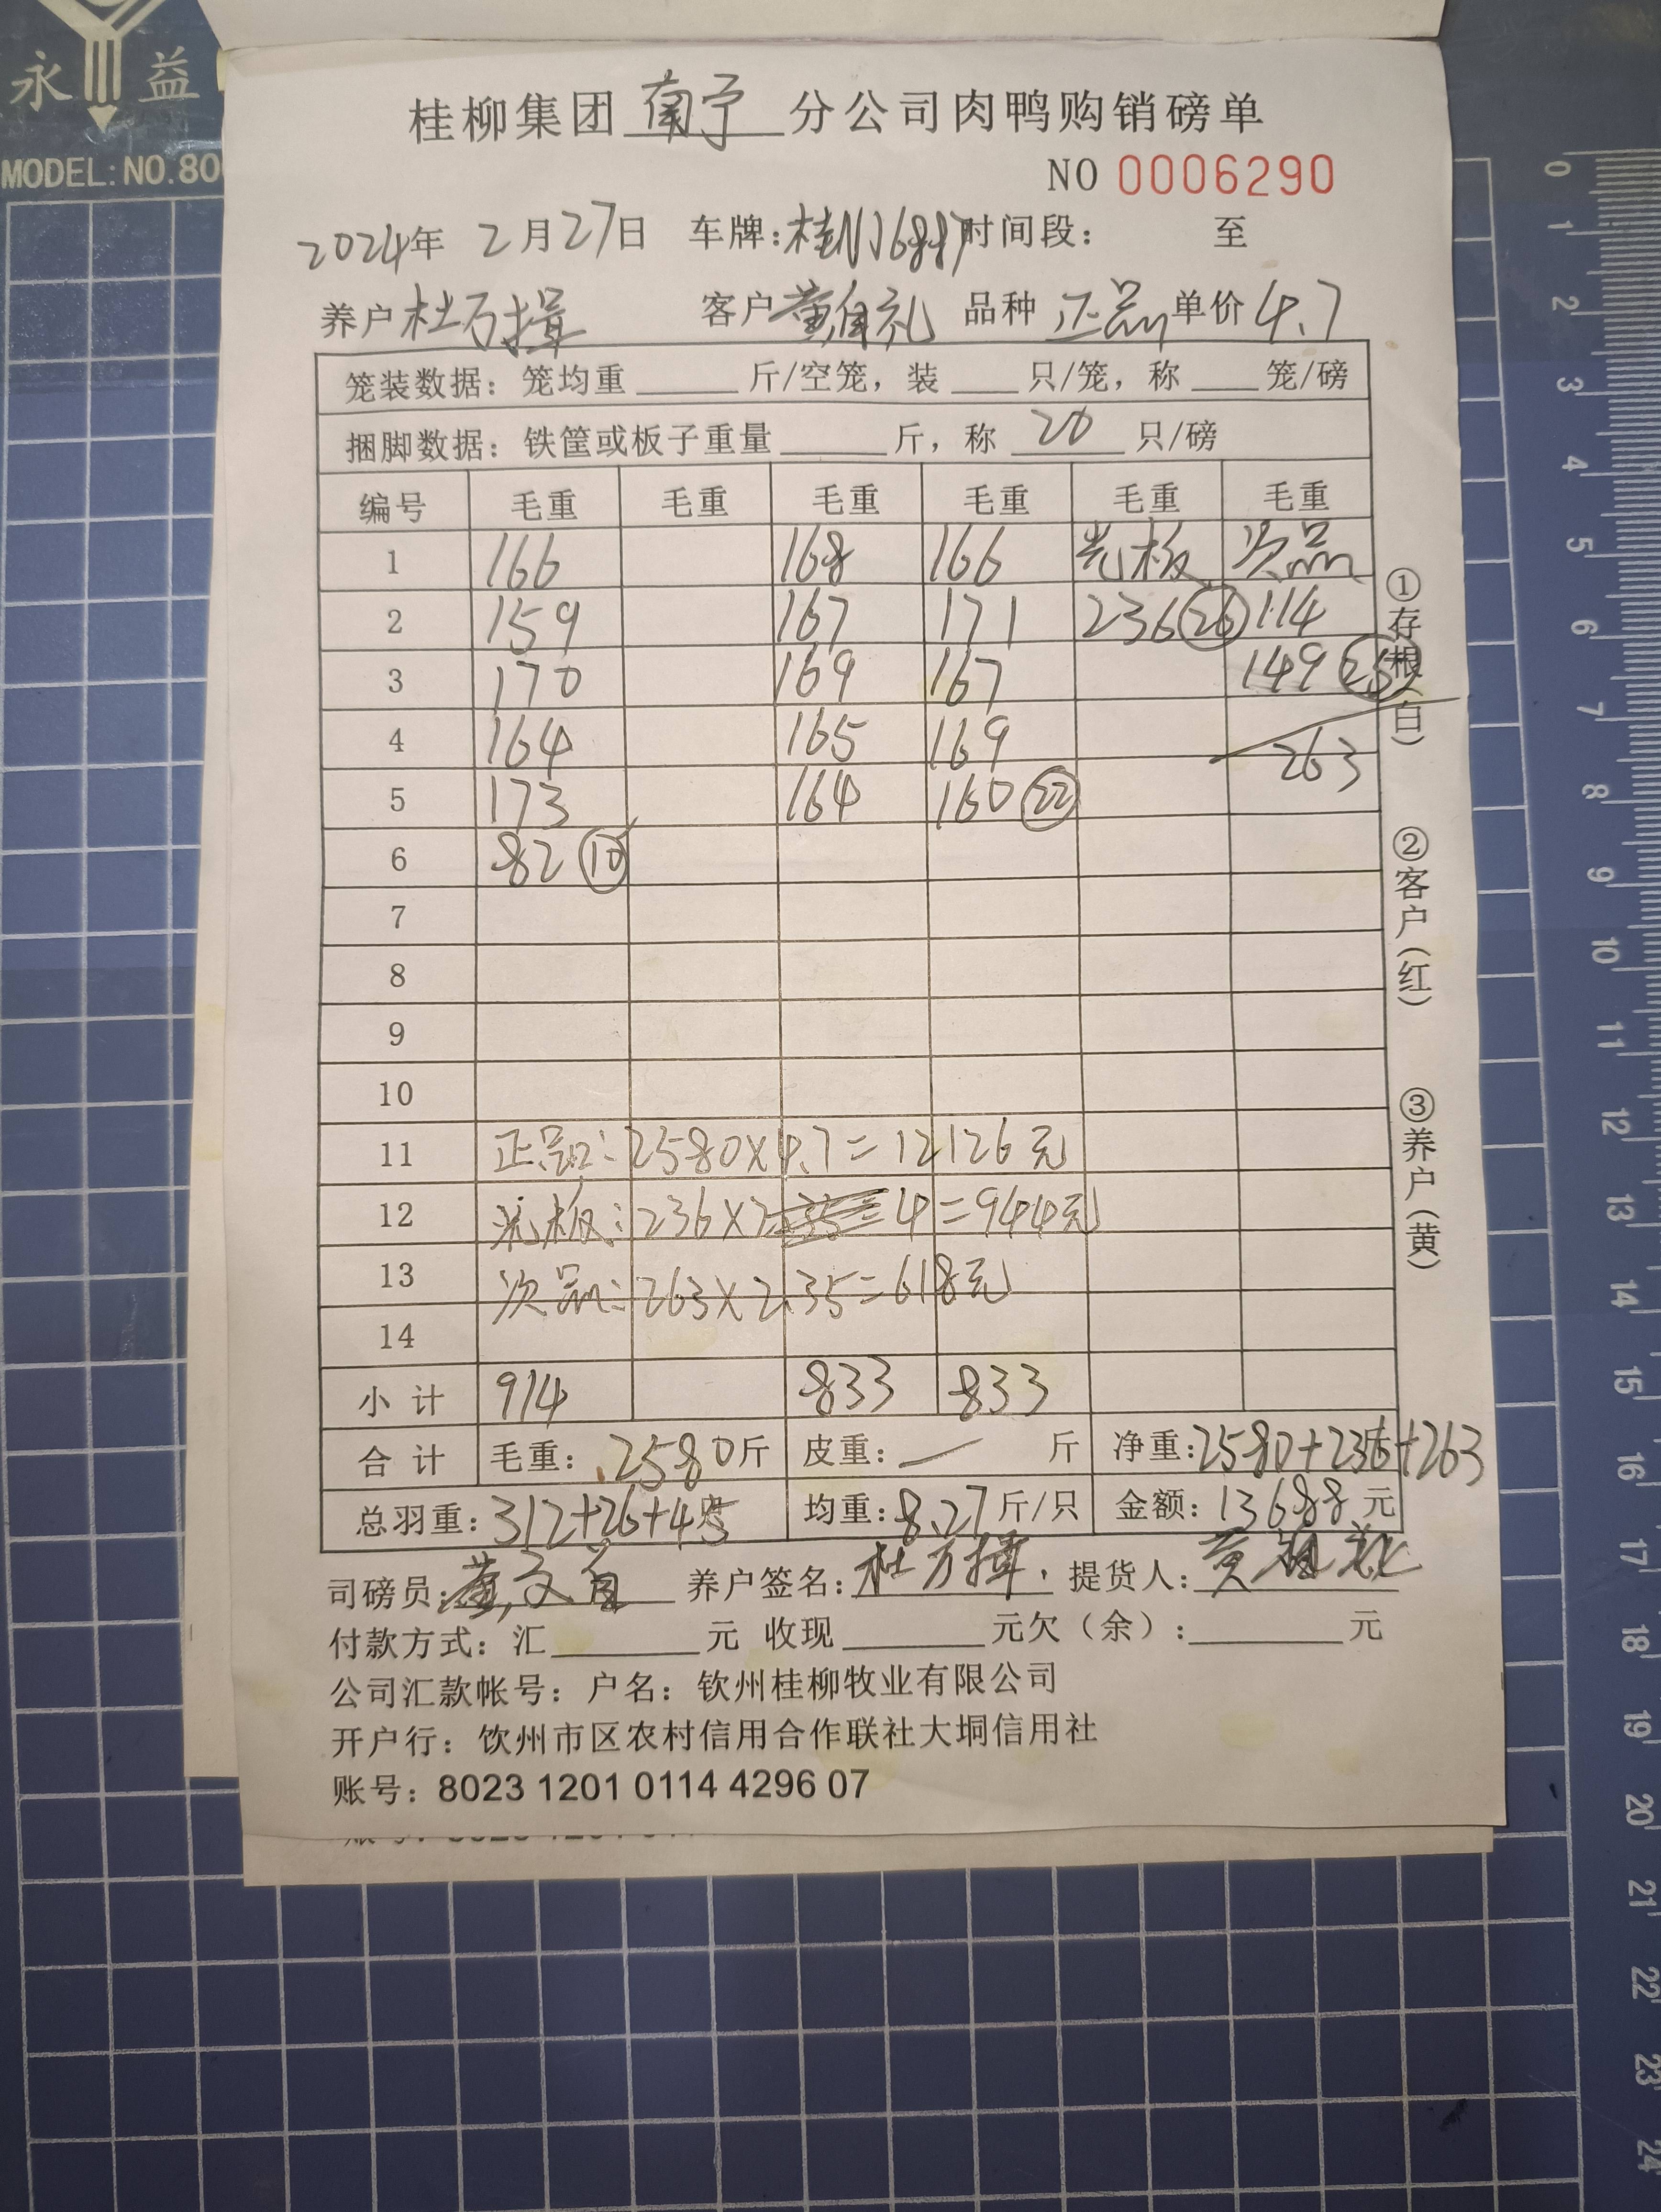 永 益
MODEL: NO.80
桂柳集团 南宁 分公司肉鸭购销磅单
NO 0006290
2024年 2月27日 车牌:桂NJ6887 时间段: 至
养户 杜万揖 客户 礼 品种 正品 单价 4.7
笼装数据: 笼均重 斤/空笼, 装 只/笼, 称 笼/磅
捆脚数据: 铁筐或板子重量 斤, 称 20 只/磅
编号 毛重 毛重 毛重 毛重 毛重 毛重
1 166 168 166 光板 次品
2 159 167 171 236 26 114
3 170 169 167 149
4 164 165 169 263
5 173 164 160 22
6 82 10
7
8
9
10
11 正品: 2580×4.7=12126元
12 光板: 236×4=944元
13 次品: 263×2.35=618元
14
小计 914 833 833
合计 毛重: 2580斤 皮重: — 斤 净重: 2580+236+263
总羽重: 312+26+45 均重: 8.27斤/只 金额: 13688元
司磅员: 养户签名: 杜万揖 提货人:
付款方式: 汇 元 收现 元欠(余): 元
公司汇款帐号: 户名: 钦州桂柳牧业有限公司
开户行: 饮州市区农村信用合作联社大垌信用社
账号: 8023 1201 0114 4296 07
①存根(白)
②客户(红)
③养户(黄)
0
1
2
3
4
5
6
7
8
9
10
11
12
13
14
15
16
17
18
19
20
21
22
23
24